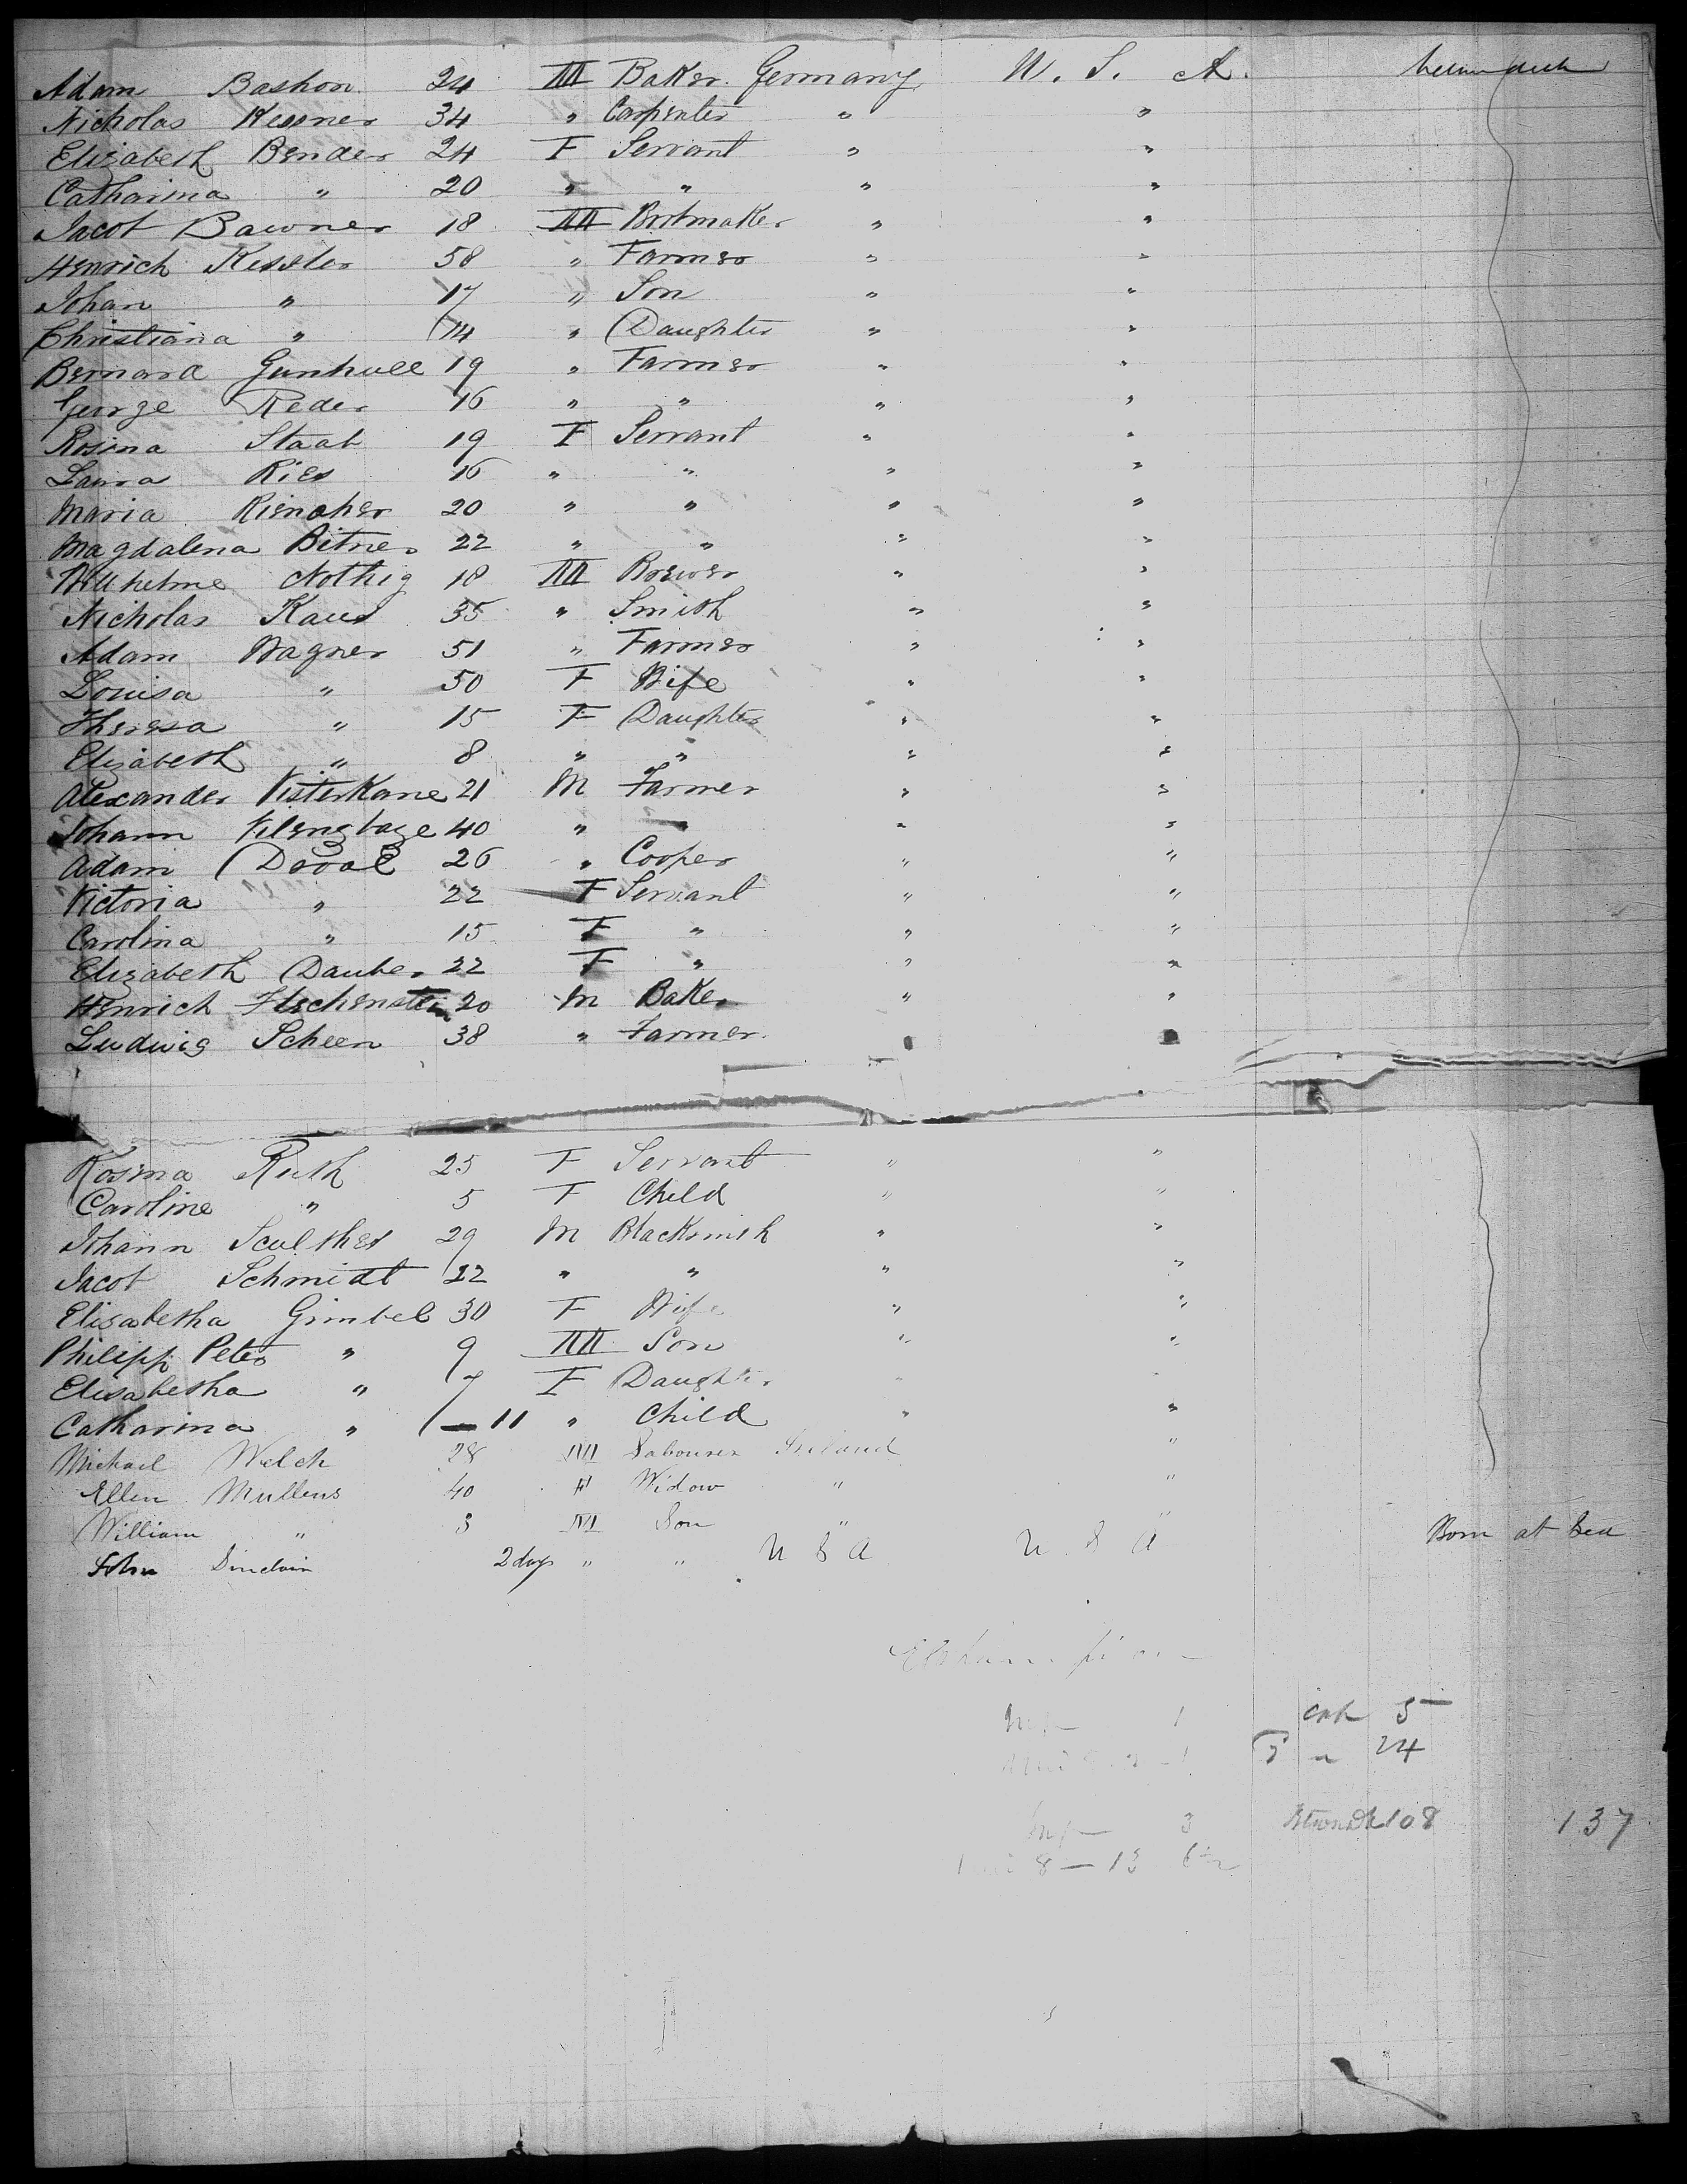 Adam Bashon 24 M Baker Germany U. S. A.
Nicholas Kesner 34 " Carpenter " "
Elizabeth Bender 24 F Servant " "
Catharina " 20 " " " "
Jacob Bawner 18 M Bootmaker " "
Henrich Kessler 58 " Farmer " "
Johan " 17 " Son " "
Christiana " 14 " Daughter " "
Bernard 19 " Farmer " "
George Reder 16 " " " "
Rosina Staab 19 F Servant " "
Laura Ries 16 " " " "
Maria 20 " " " "
Magdalena Bitner 22 " " " "
Wilhelme Nothig 18 M Brewer " "
Nicholas Kaus 35 " Smith " "
Adam Wagner 51 " Farmer " "
Louisa " 50 F Wife " "
Theresa " 15 F Daughter " "
Elizabeth " 8 " " " "
Alexander Visterkane 21 M Farmer " "
Johann 40 " " " "
Adam 26 " Cooper " "
Victoria " 22 F Servant " "
Carolina " 15 F " " "
Elizabeth Dauber 22 F " " "
Henrich Flechenstein 20 M Baker " "
Ludwig Scheen 38 " Farmer " "
Rosina Ruth 25 F Servant " "
Caroline " 5 F Child " "
Johann Sculthes 29 M Blacksmith " "
Jacob Schmidt 22 " " " "
Elisabetha Gimbel 30 F Wife " "
Philipp Peter " 9 M Son " "
Elisabetha " 7 F Daughter " "
Catharina " 11 " Child " "
Michael Welch 28 M Labourer Ireland "
Ellen Mullens 40 F Widow " "
William " 3 M Son " "
John Sinclair 2 days " " U S A U S A Born at Sea
1 cab 5
24
3 108 137
8 - 13